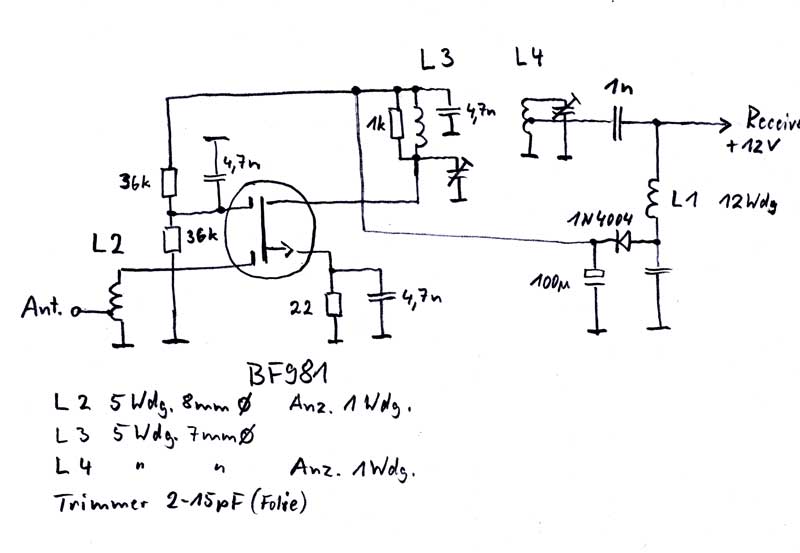 L3
L4
1n
1k
4,7n
Receive
+12V
4,7n
36k
L1 12Wdg
1N4004
36k
L2
100µ
Ant.
22
4,7n
BF981
L2 5 Wdg. 8mm Ø Anz. 1 Wdg.
L3 5 Wdg. 7mm Ø
L4 " " Anz. 1 Wdg.
Trimmer 2-15pF (Folie)